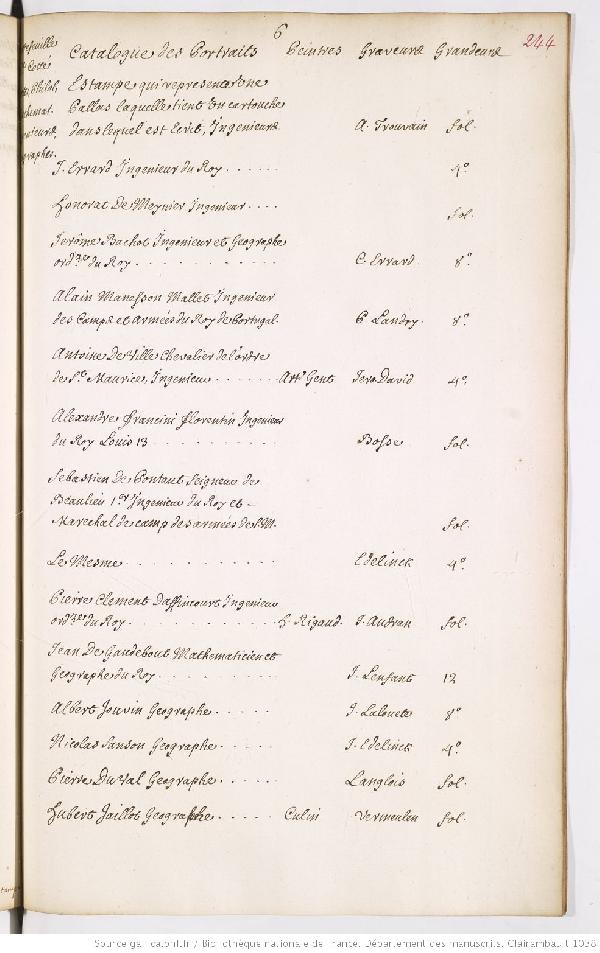 6
244
Catalogue des Portraits Peintres Graveurs Grandeurs
Estampe qui represente Une
Pallas laquelle tient Un cartouche
dans lequel est Ecrit, Ingenieurs A. Trouvain fol.
J. Errard Ingenieur du Roy . . . . . . 4º
Honorat De Meynier Ingenieur . . . . fol.
Jerôme Bachot Ingenieur et Geographe
ord.re du Roy . . . . . . . . . . . C. Errard 8º
Alain Manesson Mallet Ingenieur
des Camps et armées du Roy de Portugal. P Landry. 8º
Antoine De Ville Chevalier de l'ordre
de St. Maurice, Ingenieur . . . . . . Gent Jero David 4º.
Alexandre Francini florentin Ingenieur
du Roy Louis 13 . . . . . . . . . . Bosse fol.
Sebastien De Pontaut Seigneur de
Beaulieu 1er Ingenieur du Roy et -
Marechal de camp des armées de S.M. fol.
Le Mesme . . . . . . . . . . . Edelinck 4º
Pierre Clement Daffincourt Ingenieur
ord.re du Roy . . . . . . . . . . . H. Rigaud. J. Audran fol.
Jean De Gaudebout Mathematicien et
Geographe du Roy . . . . . . . . J. Lenfant 12
Albert Jouvin Geographe . . . . . J. Lalouete 8º
Nicolas Sanson Geographe . . . . . J. Edelinck 4º
Pierre Du Val Geographe . . . . . Langlois fol.
Hubert Jaillot Geographe . . . . . Culin Vermeulen fol.
Source gallica.bnf.fr / Bibliothèque nationale de France. Département des manuscrits. Clairambault 1038